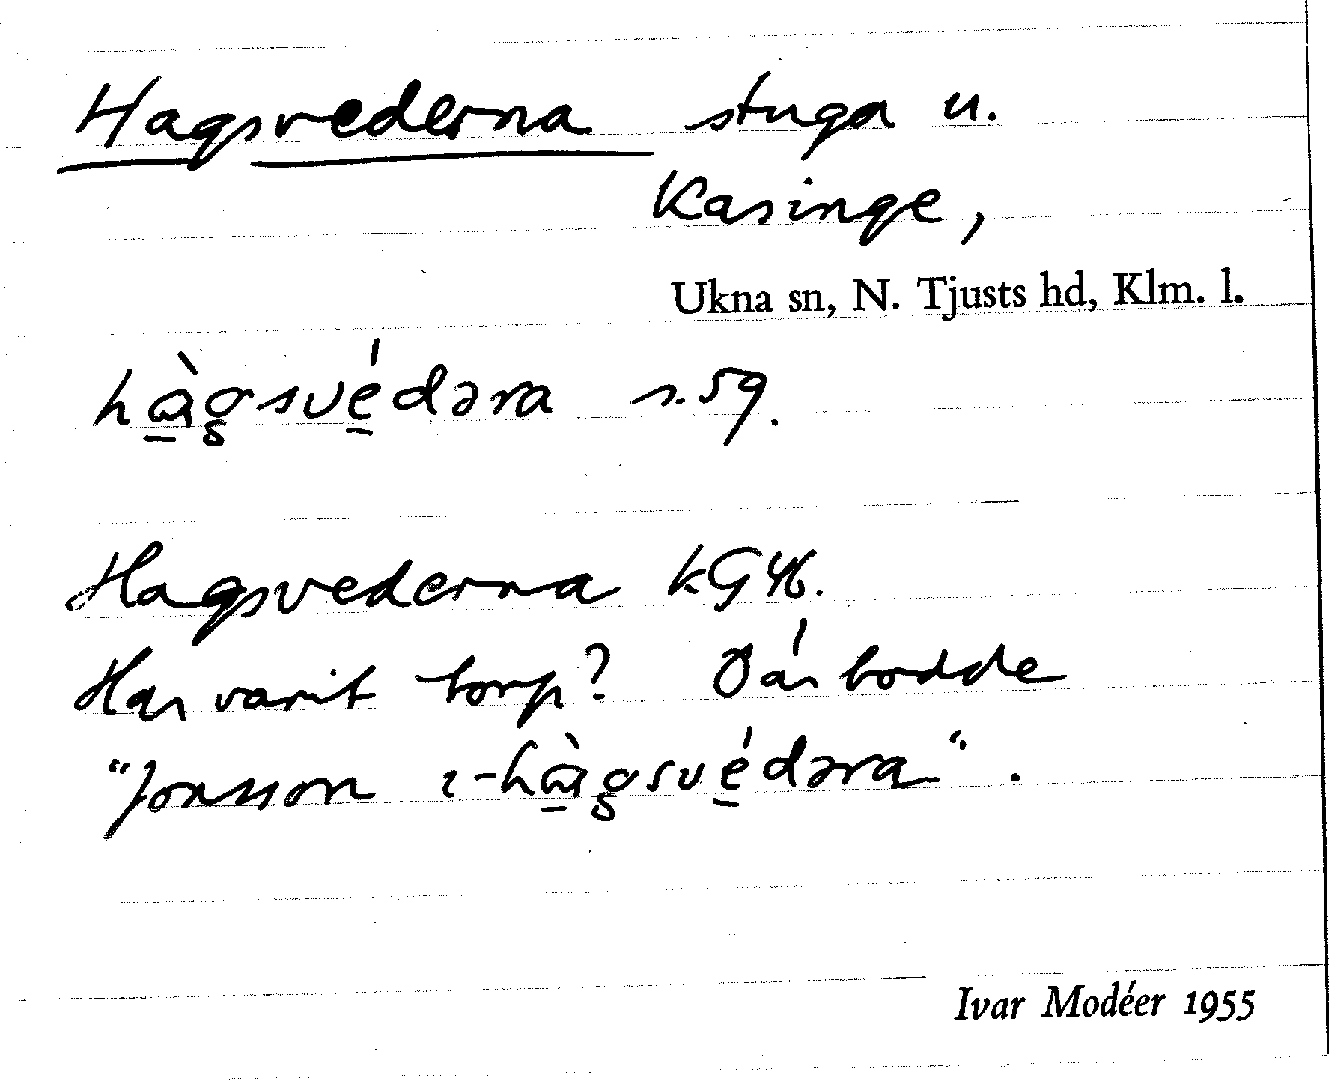 Hagsvederna stuga u.
Kasinge,
Ukna sn, N. Tjusts hd, Klm. l.
hàgsvédəra s. 59.
Hagsvederna kG46.
Har varit torp? Där bodde
"Jonsson ı-hàgsvédəra".
Ivar Modéer 1955